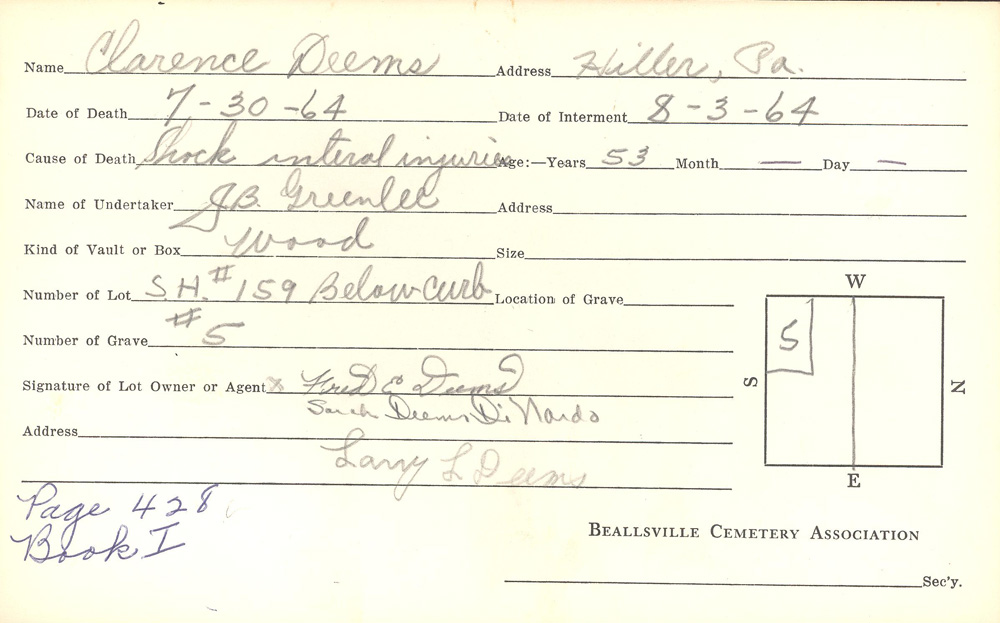 Name Clarence Deems Address Hiller, Pa.
Date of Death 7-30-64 Date of Interment 8-3-64
Cause of Death Shock interal injuries Age:—Years 53 Month — Day —
Name of Undertaker J.B. Greenlee Address
Kind of Vault or Box Wood Size
Number of Lot S.H. #159 Below Curb Location of Grave
W
Number of Grave #5
5
S
N
Signature of Lot Owner or Agent x Fred Deems
Sarah Deems Di Nardo
Address
Larry L Deems
E
Page 428
Book I
BEALLSVILLE CEMETERY ASSOCIATION
Sec'y.